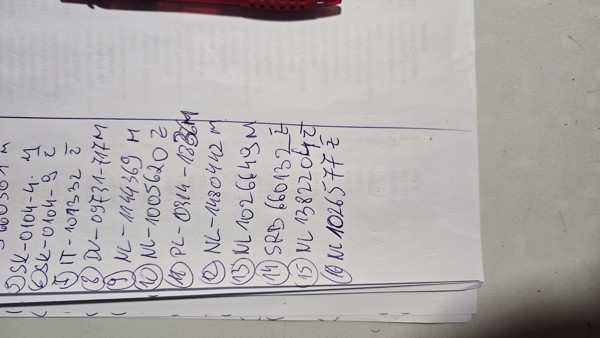 5) SK-0104-4. M
6) SK-0104-9 Ž
7) IT-101332 Ž
8) DV-09731-717M
9) NL-1144369 M
10) NL-1005620 Ž
11) PL-0314-1336M
12) NL-1480442 M
13) NL 1026649 M
14) SRB 660132 Ž
15) NL 1382204 Ž
16) NL 1026577 Ž